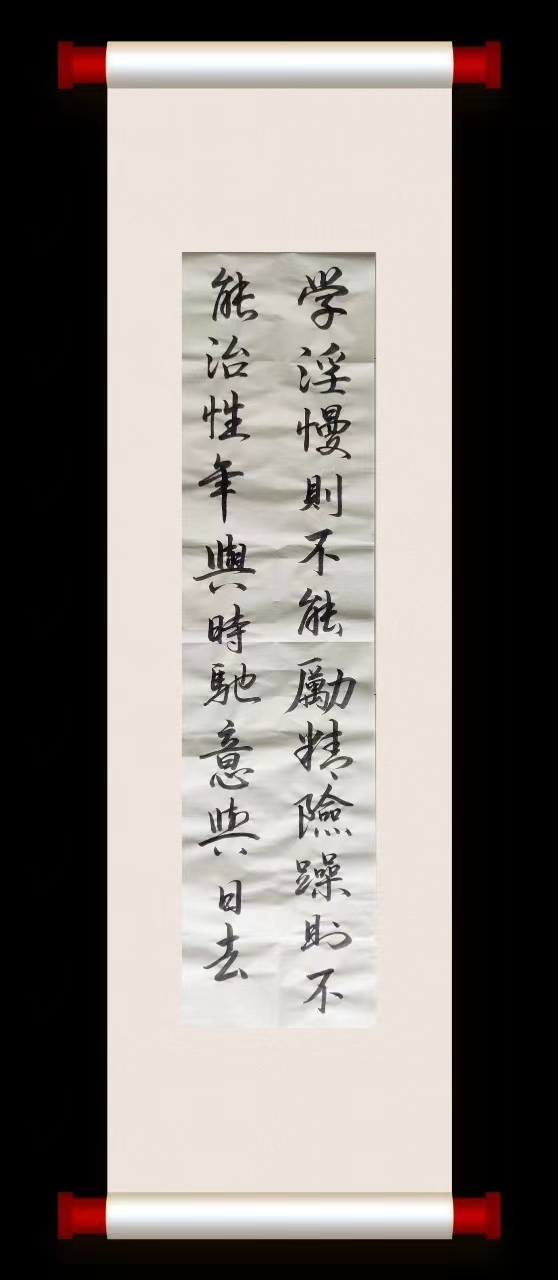 学淫慢則不能勵精險躁則不
能治性年與時馳意與日去